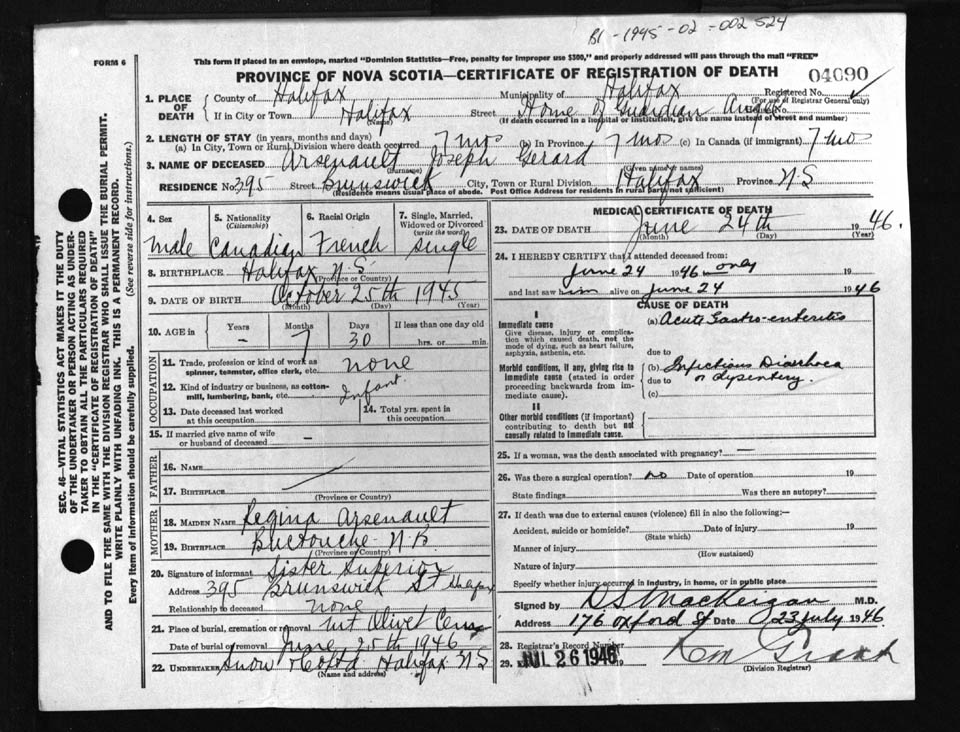 B1-1945-02-002524
FORM 6
This form if placed in an envelope, marked "Dominion Statistics—Free, penalty for improper use $300," and properly addressed will pass through the mail "FREE"
PROVINCE OF NOVA SCOTIA—CERTIFICATE OF REGISTRATION OF DEATH
04090
1. PLACE OF DEATH
County of Halifax Municipality of Halifax Registered No.
(For use of Registrar General only)
If in City or Town Halifax Street Home of Guardian Angel
(Name) (If death occurred in a hospital or institution, give name instead of street and number)
2. LENGTH OF STAY (in years, months and days)
(a) In City, Town or Rural Division where death occurred 7 mos (b) In Province 7 mos (c) In Canada (if immigrant) 7 mos
3. NAME OF DECEASED Arsenault Joseph Gerard
(Surname) (Given name or names)
RESIDENCE No. 395 Street Brunswick City, Town or Rural Division Halifax Province N S
(Residence means usual place of abode. Post Office Address for residents in rural parts not sufficient)
4. Sex
male
5. Nationality (Citizenship)
Canadian
6. Racial Origin
French
7. Single, Married, Widowed or Divorced (write the word)
single
8. BIRTHPLACE Halifax N S
(Province or Country)
9. DATE OF BIRTH October 25th 1945
(Month) (Day) (Year)
10. AGE in Years Months Days If less than one day old
- 7 30 hrs. or min.
OCCUPATION
11. Trade, profession or kind of work as spinner, teamster, office clerk, etc. none
12. Kind of industry or business, as cotton-mill, lumbering, bank, etc. Infant
13. Date deceased last worked at this occupation
14. Total yrs. spent in this occupation
15. If married give name of wife or husband of deceased —
FATHER
16. NAME
17. BIRTHPLACE
(Province or Country)
MOTHER
18. MAIDEN NAME Regina Arsenault
19. BIRTHPLACE Buctouche N.B.
(Province or Country)
20. Signature of informant Sister Superior
Address 395 Brunswick St Halifax
Relationship to deceased none
21. Place of burial, cremation or removal Mt Olivet Cem
Date of burial or removal June 25th 1946
22. UNDERTAKER Snow & Co Ltd Halifax N S
(Name and address)
MEDICAL CERTIFICATE OF DEATH
23. DATE OF DEATH June 24th 1946.
(Month) (Day) (Year)
24. I HEREBY CERTIFY that I attended deceased from:
June 24 1946 only 19
and last saw him alive on June 24 1946
CAUSE OF DEATH
I
Immediate cause
Give disease, injury or complication which caused death, not the mode of dying, such as heart failure, asphyxia, asthenia, etc.
(a) Acute Gastro-enteritis
due to
Morbid conditions, if any, giving rise to immediate cause (stated in order proceeding backwards from immediate cause).
(b) Infectious Diarrhoea
due to or dysentery.
(c)
II
Other morbid conditions (if important) contributing to death but not causally related to immediate cause.
25. If a woman, was the death associated with pregnancy? —
26. Was there a surgical operation no Date of operation 19
State findings Was there an autopsy?
27. If death was due to external causes (violence) fill in also the following:—
Accident, suicide or homicide? Date of injury 19
(State which)
Manner of injury
(How sustained)
Nature of injury
Specify whether injury occurred in industry, in home, or in public place
Signed by D S MacKeigan M.D.
Address 176 Oxford St Date 23 July 1946.
28. Registrar's Record Number
29. JUL 26 1946 19
(Division Registrar)
SEC. 46—VITAL STATISTICS ACT MAKES IT THE DUTY
OF THE UNDERTAKER OR PERSON ACTING AS UNDER-
TAKER TO OBTAIN ALL THE PARTICULARS REQUIRED
IN THE "CERTIFICATE OF REGISTRATION OF DEATH"
AND TO FILE THE SAME WITH THE DIVISION REGISTRAR WHO SHALL ISSUE THE BURIAL PERMIT.
WRITE PLAINLY WITH UNFADING INK. THIS IS A PERMANENT RECORD.
Every item of information should be carefully supplied. (See reverse side for instructions.)